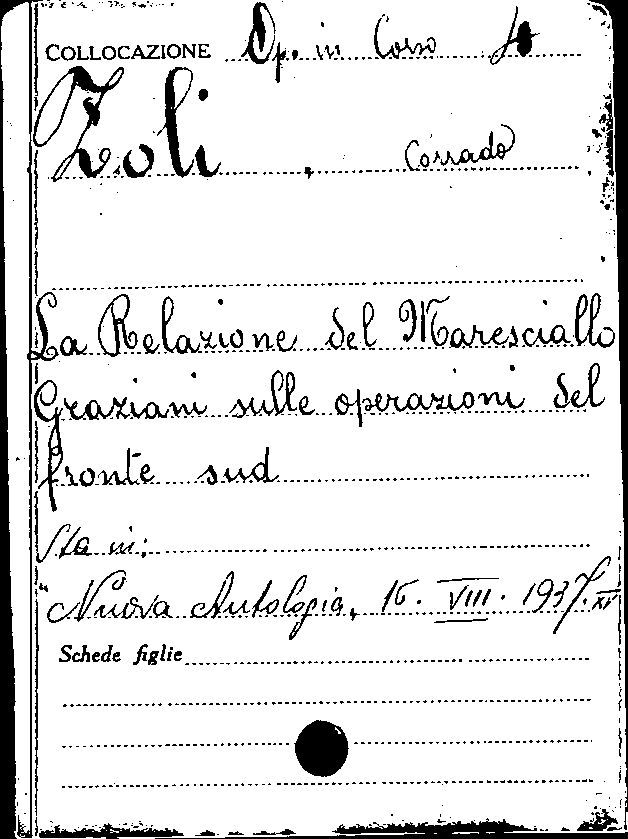 COLLOCAZIONE Op. in Corso
Zoli, Corrado
La Relazione del Maresciallo
Graziani sulle operazioni del
fronte sud
Sta in:
"Nuova Antologia, 16. VIII. 1937. XV
Schede figlie